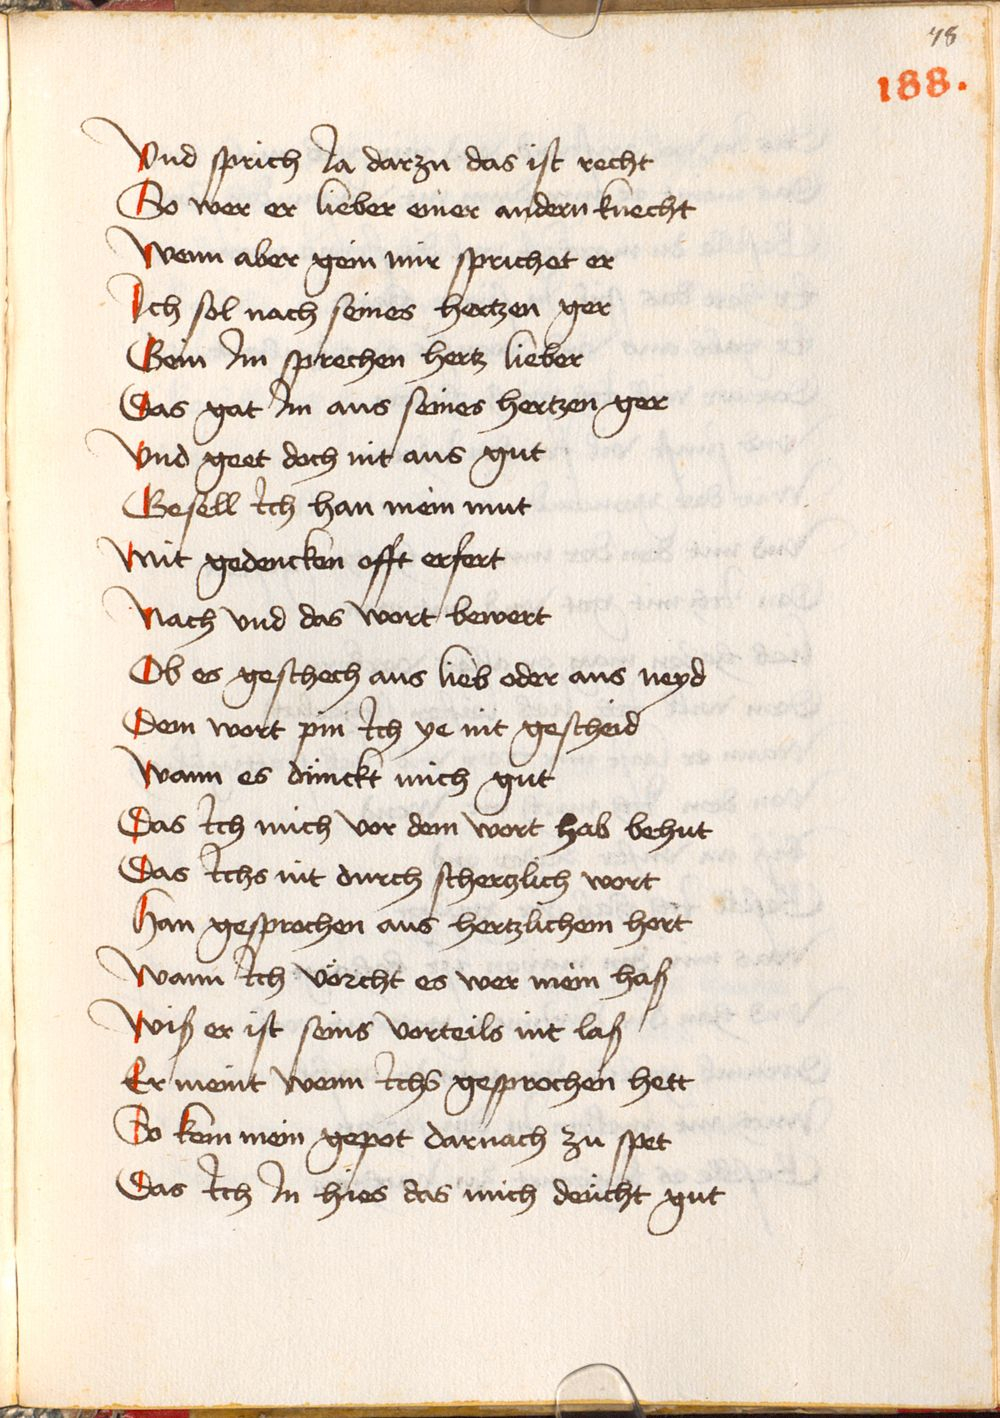 48
188.
Vnd sprich Ja darzu das ist recht
So wer er lieber einer andern knecht
Wenn aber gein mir sprichet er
Ich sol nach seines hertzen ger
Gein Im sprechen hertz lieber
Das gat Im aus seines hertzen ger
Vnd geet doch nit aus gut
Gesell Ich han mein mut
Mit gedencken offt erfert
Nach vnd das wort bewert
Ob es geschech aus lieb oder aus neyd
Dem wort pin Ich ye nit gescheid
Wann es dünckt mich gut
Das Ich mich vor dem wort hab behut
Das Ichs nit durch schertzlich wort
Han gesprochen aus hertzlichem hort
Wann Ich vörcht es wer mein haß
Wiß er ist seins vorteils nit laß
Er meint wenn Ichs gesprochen hett
So kem mein gepot darnach zu spet
Das Ich In hies das mich deücht gut